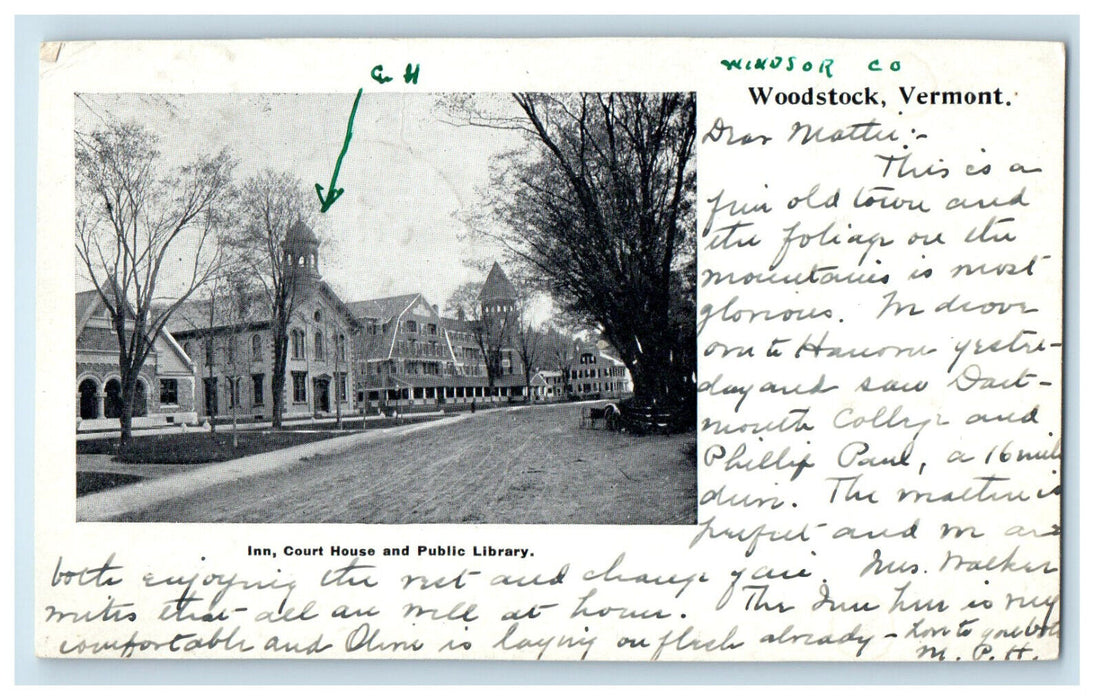 WINDSOR CO
C H
Woodstock, Vermont.
Dear Mattie:-
This is a
fine old town and
the foliage on the
mountains is most
glorious. We drove
over to Hanover yester-
day and saw Dart-
mouth College and
Phillip Paul, a 16 mile
drive. The weather is
perfect and we are
Inn, Court House and Public Library.
both enjoying the rest and change . Mrs. Walker
writes that all are well at home. The Inn here is very
comfortable and Olive is laying on flesh already - Love to you both
M. P. H.